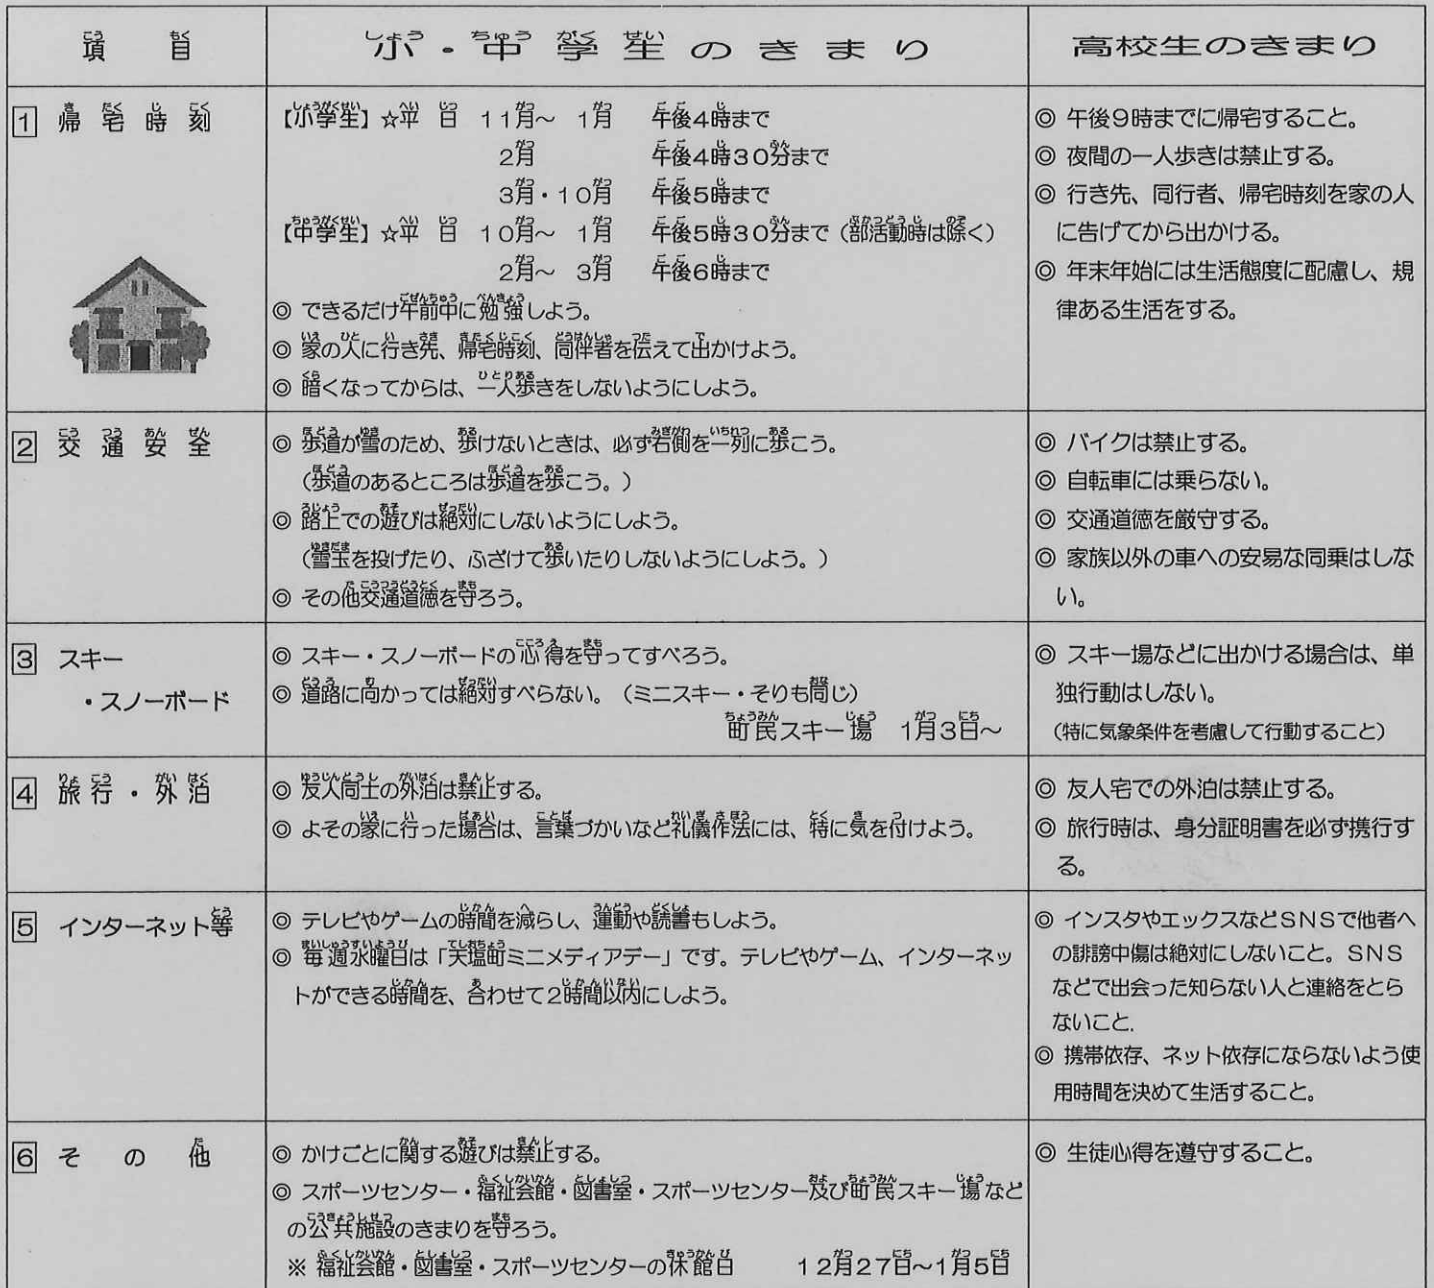 項目 小・中学生のきまり 高校生のきまり
1 帰宅時刻
【小学生】☆平日 11月～ 1月 午後4時まで
2月 午後4時30分まで
3月・10月 午後5時まで
【中学生】☆平日 10月～ 1月 午後5時30分まで（部活動時は除く）
2月～ 3月 午後6時まで
◎ できるだけ午前中に勉強しよう。
◎ 家の人に行き先、帰宅時刻、同伴者を伝えて出かけよう。
◎ 暗くなってからは、一人歩きをしないようにしよう。
◎ 午後9時までに帰宅すること。
◎ 夜間の一人歩きは禁止する。
◎ 行き先、同行者、帰宅時刻を家の人
に告げてから出かける。
◎ 年末年始には生活態度に配慮し、規
律ある生活をする。
2 交通安全
◎ 歩道が雪のため、歩けないときは、必ず右側を一列に歩こう。
（歩道のあるところは歩道を歩こう。）
◎ 路上での遊びは絶対にしないようにしよう。
（雪玉を投げたり、ふざけて歩いたりしないようにしよう。）
◎ その他交通道徳を守ろう。
◎ バイクは禁止する。
◎ 自転車には乗らない。
◎ 交通道徳を厳守する。
◎ 家族以外の車への安易な同乗はしな
い。
3 スキー
・スノーボード
◎ スキー・スノーボードの心得を守ってすべろう。
◎ 道路に向かっては絶対すべらない。（ミニスキー・そりも同じ）
町民スキー場 1月3日～
◎ スキー場などに出かける場合は、単
独行動はしない。
（特に気象条件を考慮して行動すること）
4 旅行・外泊
◎ 友人同士の外泊は禁止する。
◎ よその家に行った場合は、言葉づかいなど礼儀作法には、特に気を付けよう。
◎ 友人宅での外泊は禁止する。
◎ 旅行時は、身分証明書を必ず携行す
る。
5 インターネット等
◎ テレビやゲームの時間を減らし、運動や読書もしよう。
◎ 毎週水曜日は「天塩町ミニメディアデー」です。テレビやゲーム、インターネッ
トができる時間を、合わせて2時間以内にしよう。
◎ インスタやエックスなどSNSで他者へ
の誹謗中傷は絶対にしないこと。SNS
などで出会った知らない人と連絡をとら
ないこと.
◎ 携帯依存、ネット依存にならないよう使
用時間を決めて生活すること。
6 その他
◎ かけごとに関する遊びは禁止する。
◎ スポーツセンター・福祉会館・図書室・スポーツセンター及び町民スキー場など
の公共施設のきまりを守ろう。
※ 福祉会館・図書室・スポーツセンターの休館日 12月27日～1月5日
◎ 生徒心得を遵守すること。